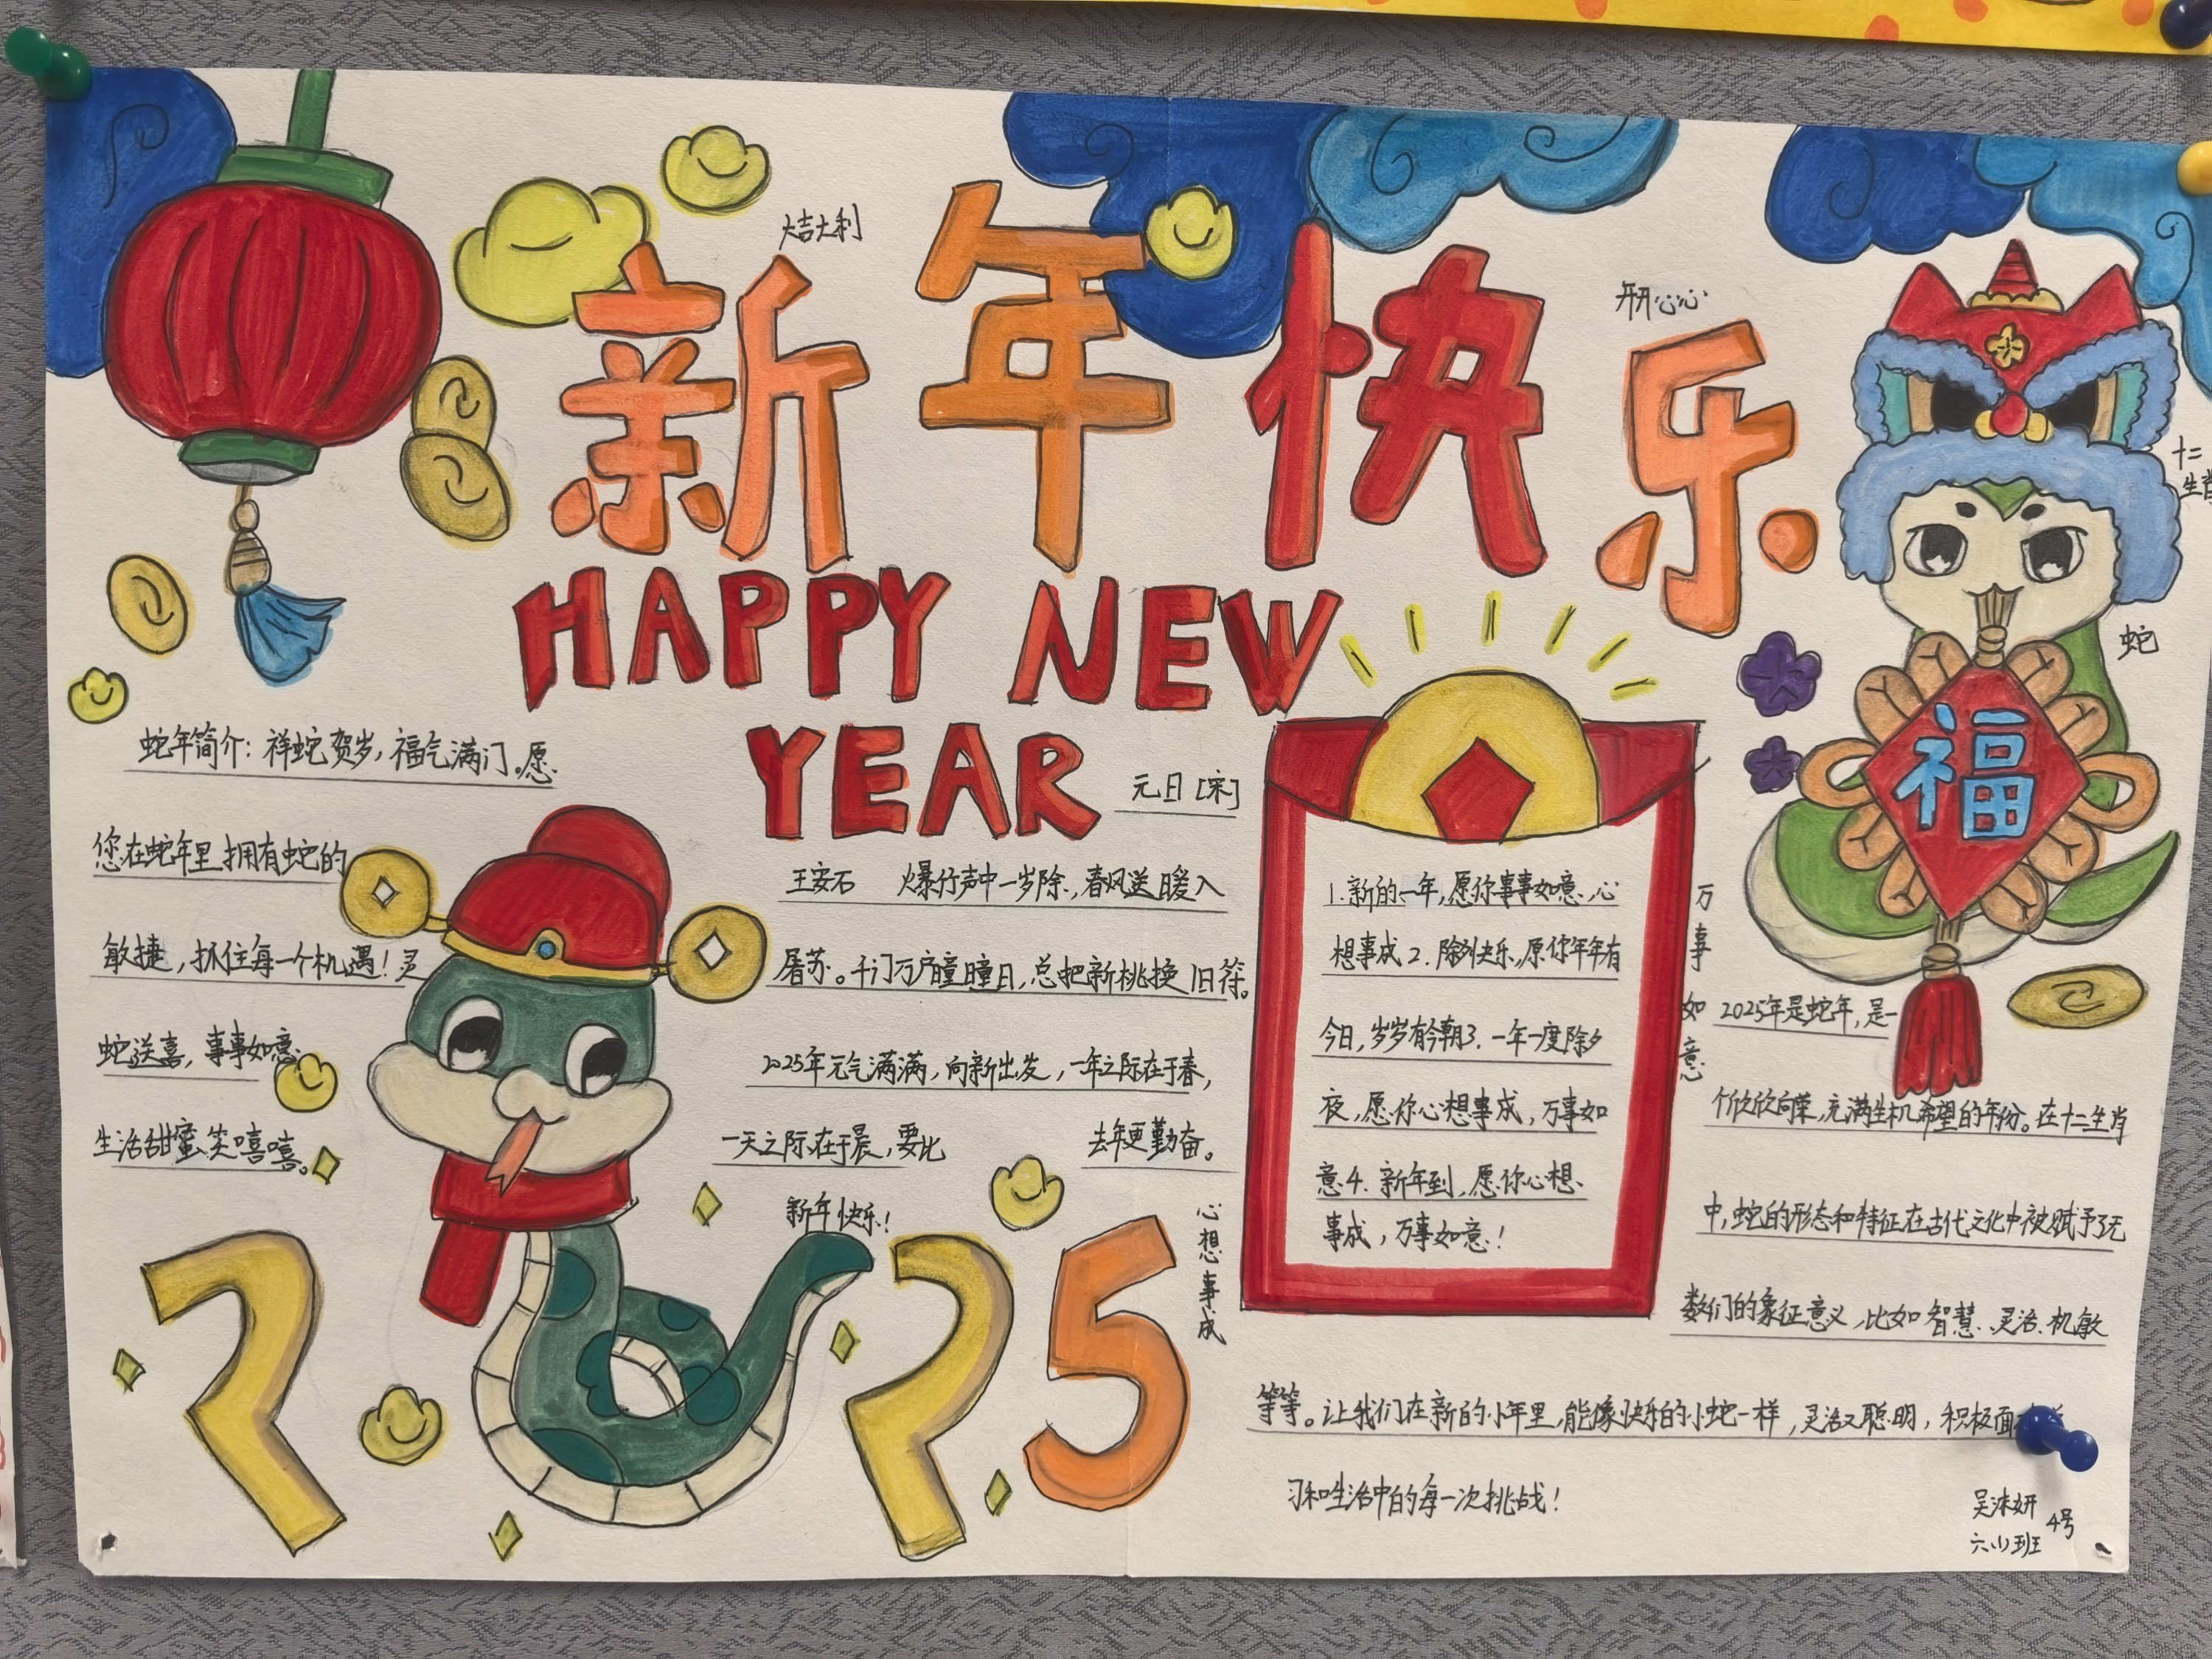 大吉大利
新年快乐
开开心心
HAPPY NEW
YEAR
十二
生肖
蛇
福
蛇年简介：祥蛇贺岁，福气满门。愿
您在蛇年里拥有蛇的
敏捷，抓住每一个机遇！灵
蛇送喜，事事如意、
生活甜蜜、笑嘻嘻。
元日［宋］
王安石 爆竹声中一岁除，春风送暖入
屠苏。千门万户曈曈日，总把新桃换旧符。
2025年元气满满，向新出发，一年之际在于春，
一天之际在于晨，要比 去年更勤奋。
新年快乐！
2 25
心想事成
1.新的一年，愿你事事如意、心
想事成2.除夕快乐，原你年年有
今日，岁岁有今朝3.一年一度除夕
夜，愿你心想事成，万事如
意4.新年到，愿你心想、
事成，万事如意！
万事如意
2025年是蛇年，是一
个欣欣向荣，充满生机希望的年份。在十二生肖
中，蛇的形态和特征在古代文化中被赋予了无
数们的象征意义，比如智慧、灵活、机敏
等等。让我们在新的小年里，能像快乐的小蛇一样，灵活又聪明，积极面
习和生活中的每一次挑战！
吴沐妍
六(1)班 4号